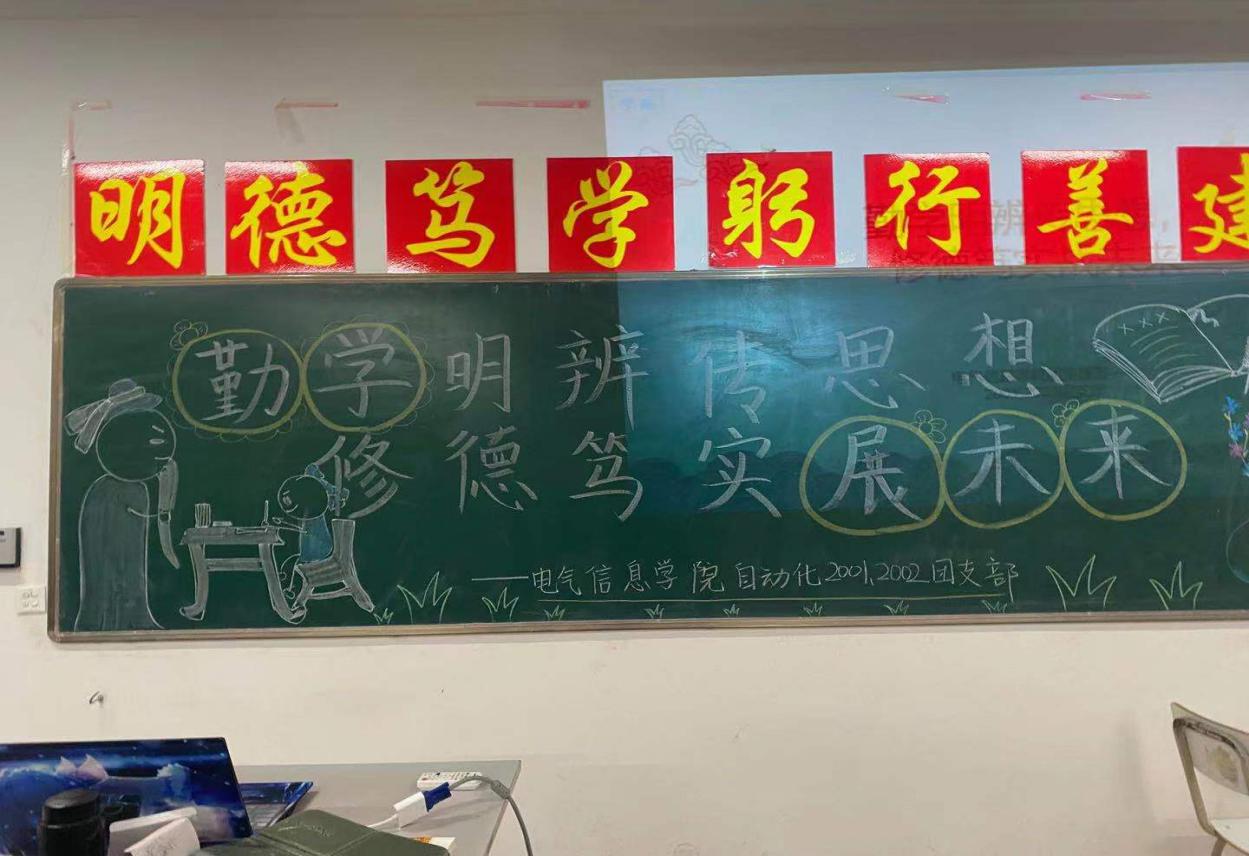 明德笃学躬行善建
勤学明辨传思想
修德笃实展未来
——电气信息学院自动化2001,2002团支部